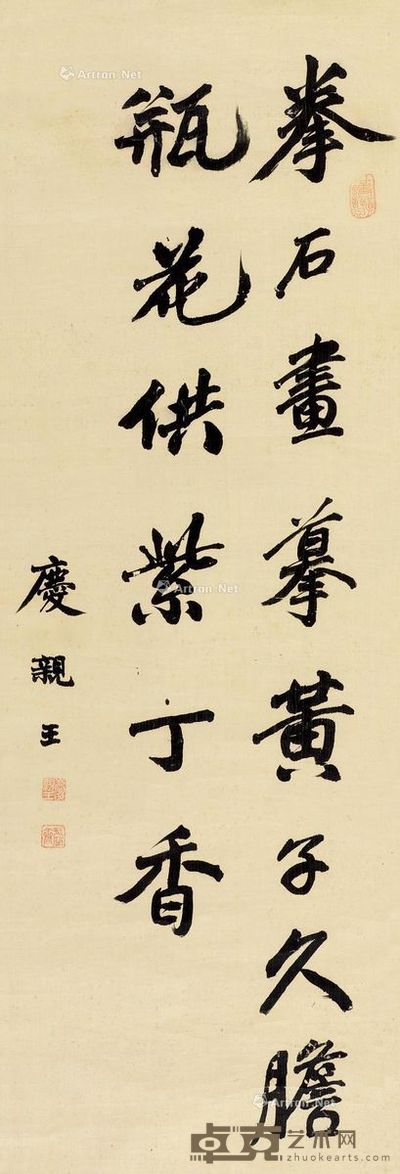 拳石畫摹黃子久膽
瓶花供紫丁香
慶親王
Artron.Net
Artron.Net
Artron.Net
卓克艺术网
zhuokearts.com